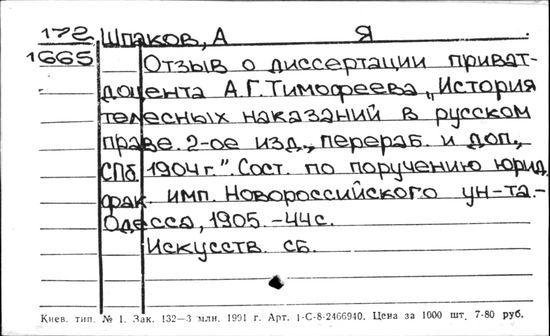 172 Шпаков, А Я
1665
Отзыв о диссертации приват-
доцента А.Г. Тимофеева „История
телесных наказаний в русском
праве. 2-ое изд., перераб. и доп.,
СПб. 1904 г.". Сост. по поручению юрид.
фак. имп. Новороссийского ун-та.-
Одесса, 1905. -44с.
Искусств. сб.
Киев. тип. № 1. Зак. 132—3 млн. 1991 г. Арт. 1-С-8-2466940. Цена за 1000 шт. 7-80 руб.